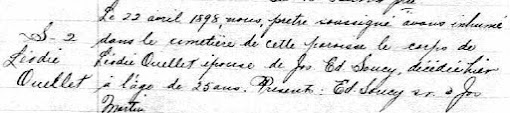 Le 22 avril 1898, nous, pretre soussigné avons inhumé
S-2 dans le cimetière de cette paroisse le corps de
Léodie Léodie Ouellet épouse de Jos Ed. Soucy, décédée hier
Ouellet à l'âge de 25 ans. Présent: Ed. Soucy sr. & Jos
Martin